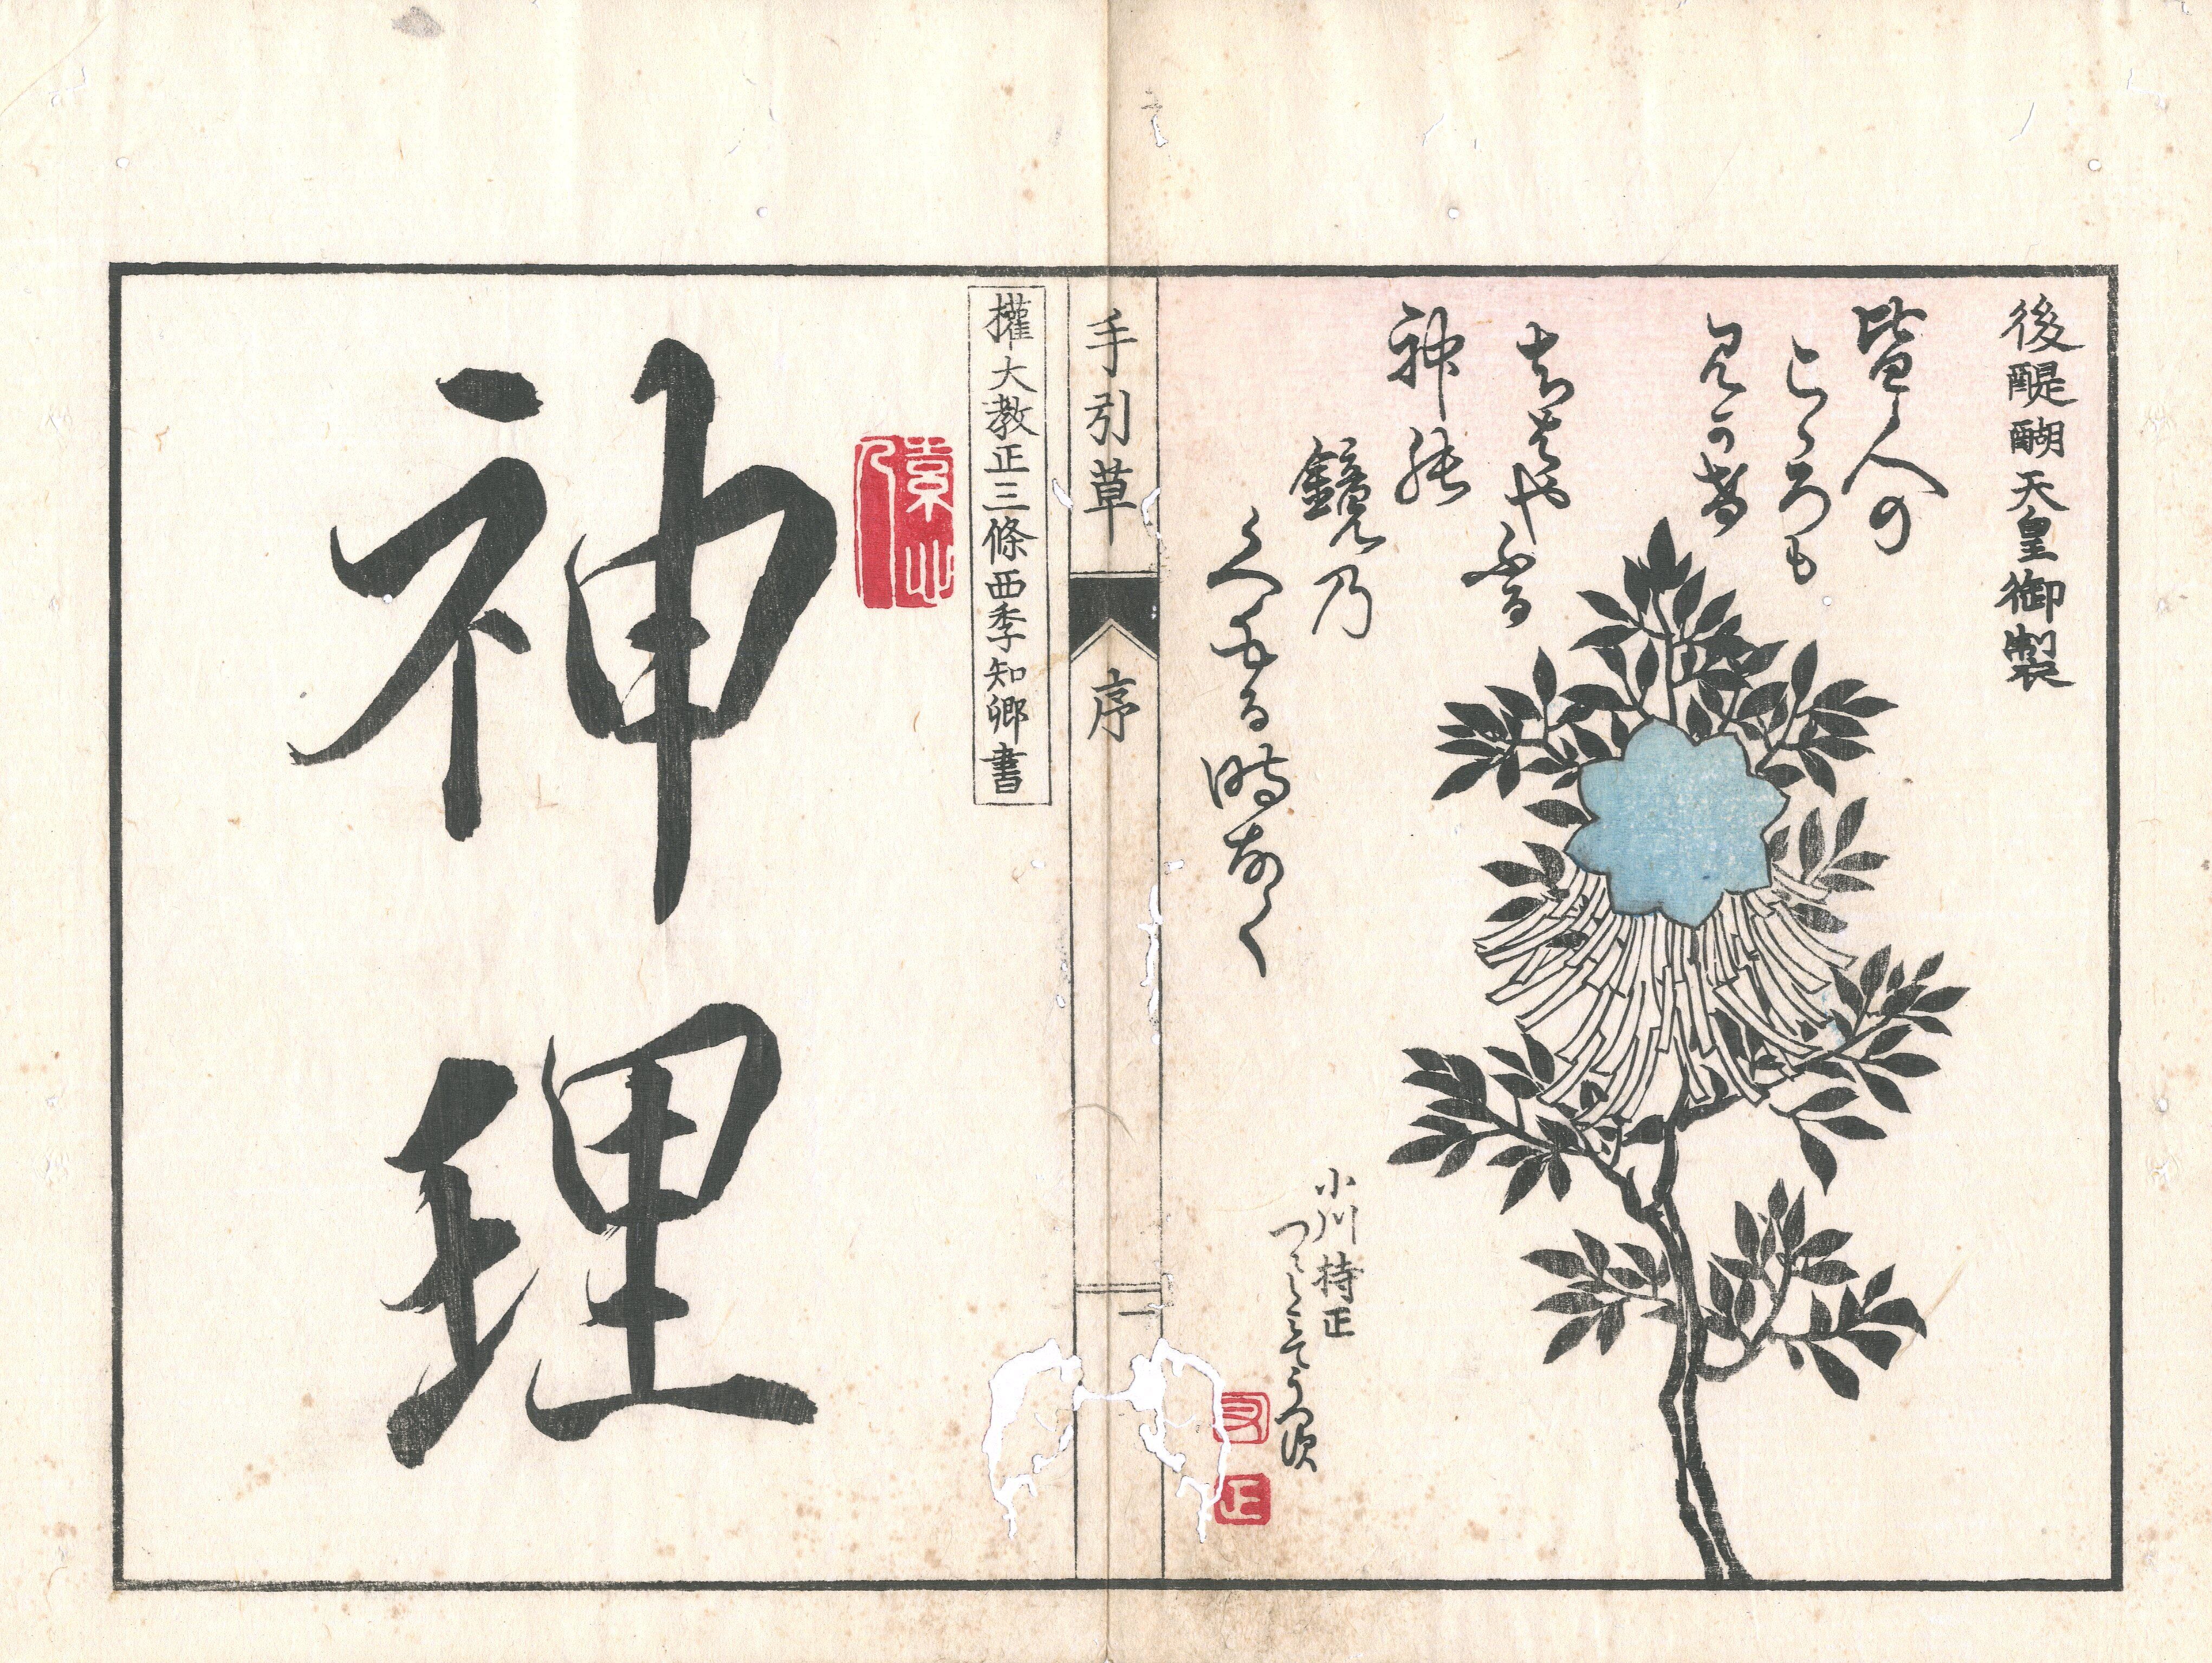 後醍醐天皇御製
皆人の
こゝろも
みかけ
ちはや
ふる
神能
鏡乃
くもる時なく
小川持正
つゝしミてうつ須
正
手引草
序
一
權大教正三條西季知卿書
神理